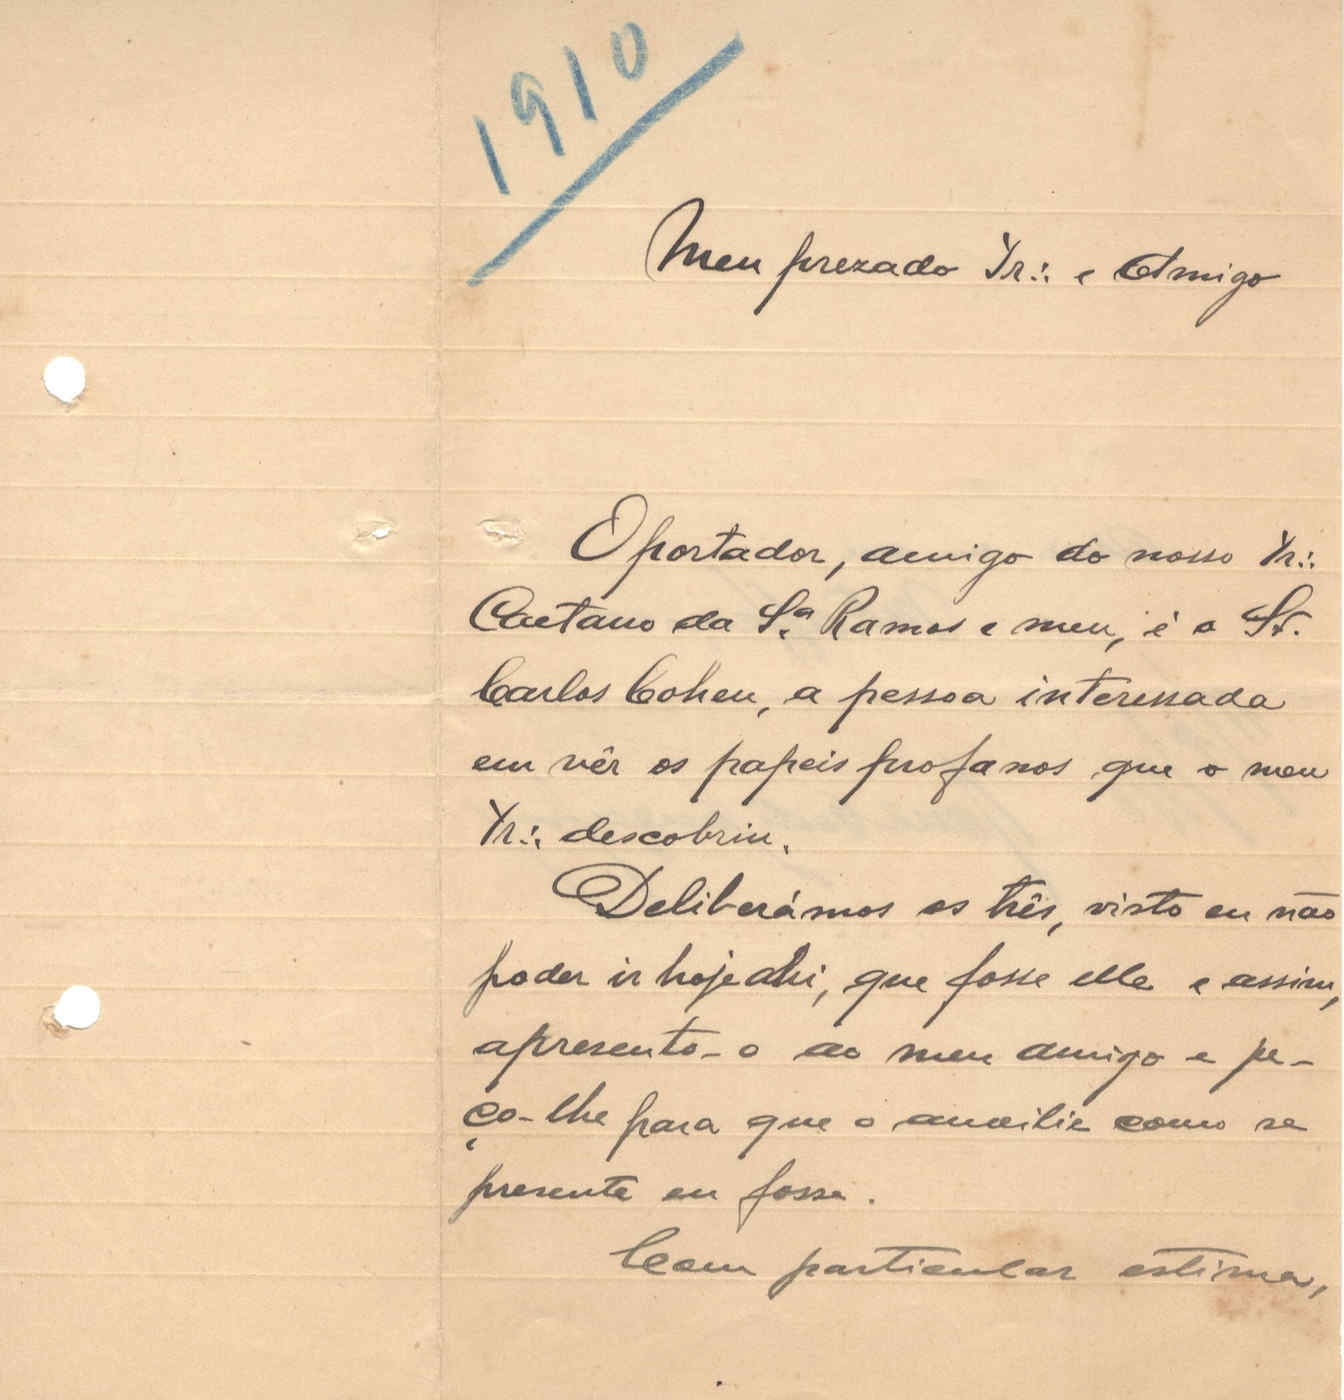 1910
Meu prezado Ir∴ e Amigo
O portador, amigo do nosso Ir∴
Caetano da S.ª Ramos e meu, é o Sr.
Carlos Cohen, a pessoa interessada
em vêr os papeis profanos que o meu
Ir∴ descobriu.
Deliberámos os três, visto eu não
poder ir hoje ahi, que fosse elle e assim,
apresento-o ao meu amigo e pe-
ço-lhe para que o auxilie como se
presente eu fosse.
Com particular estima,